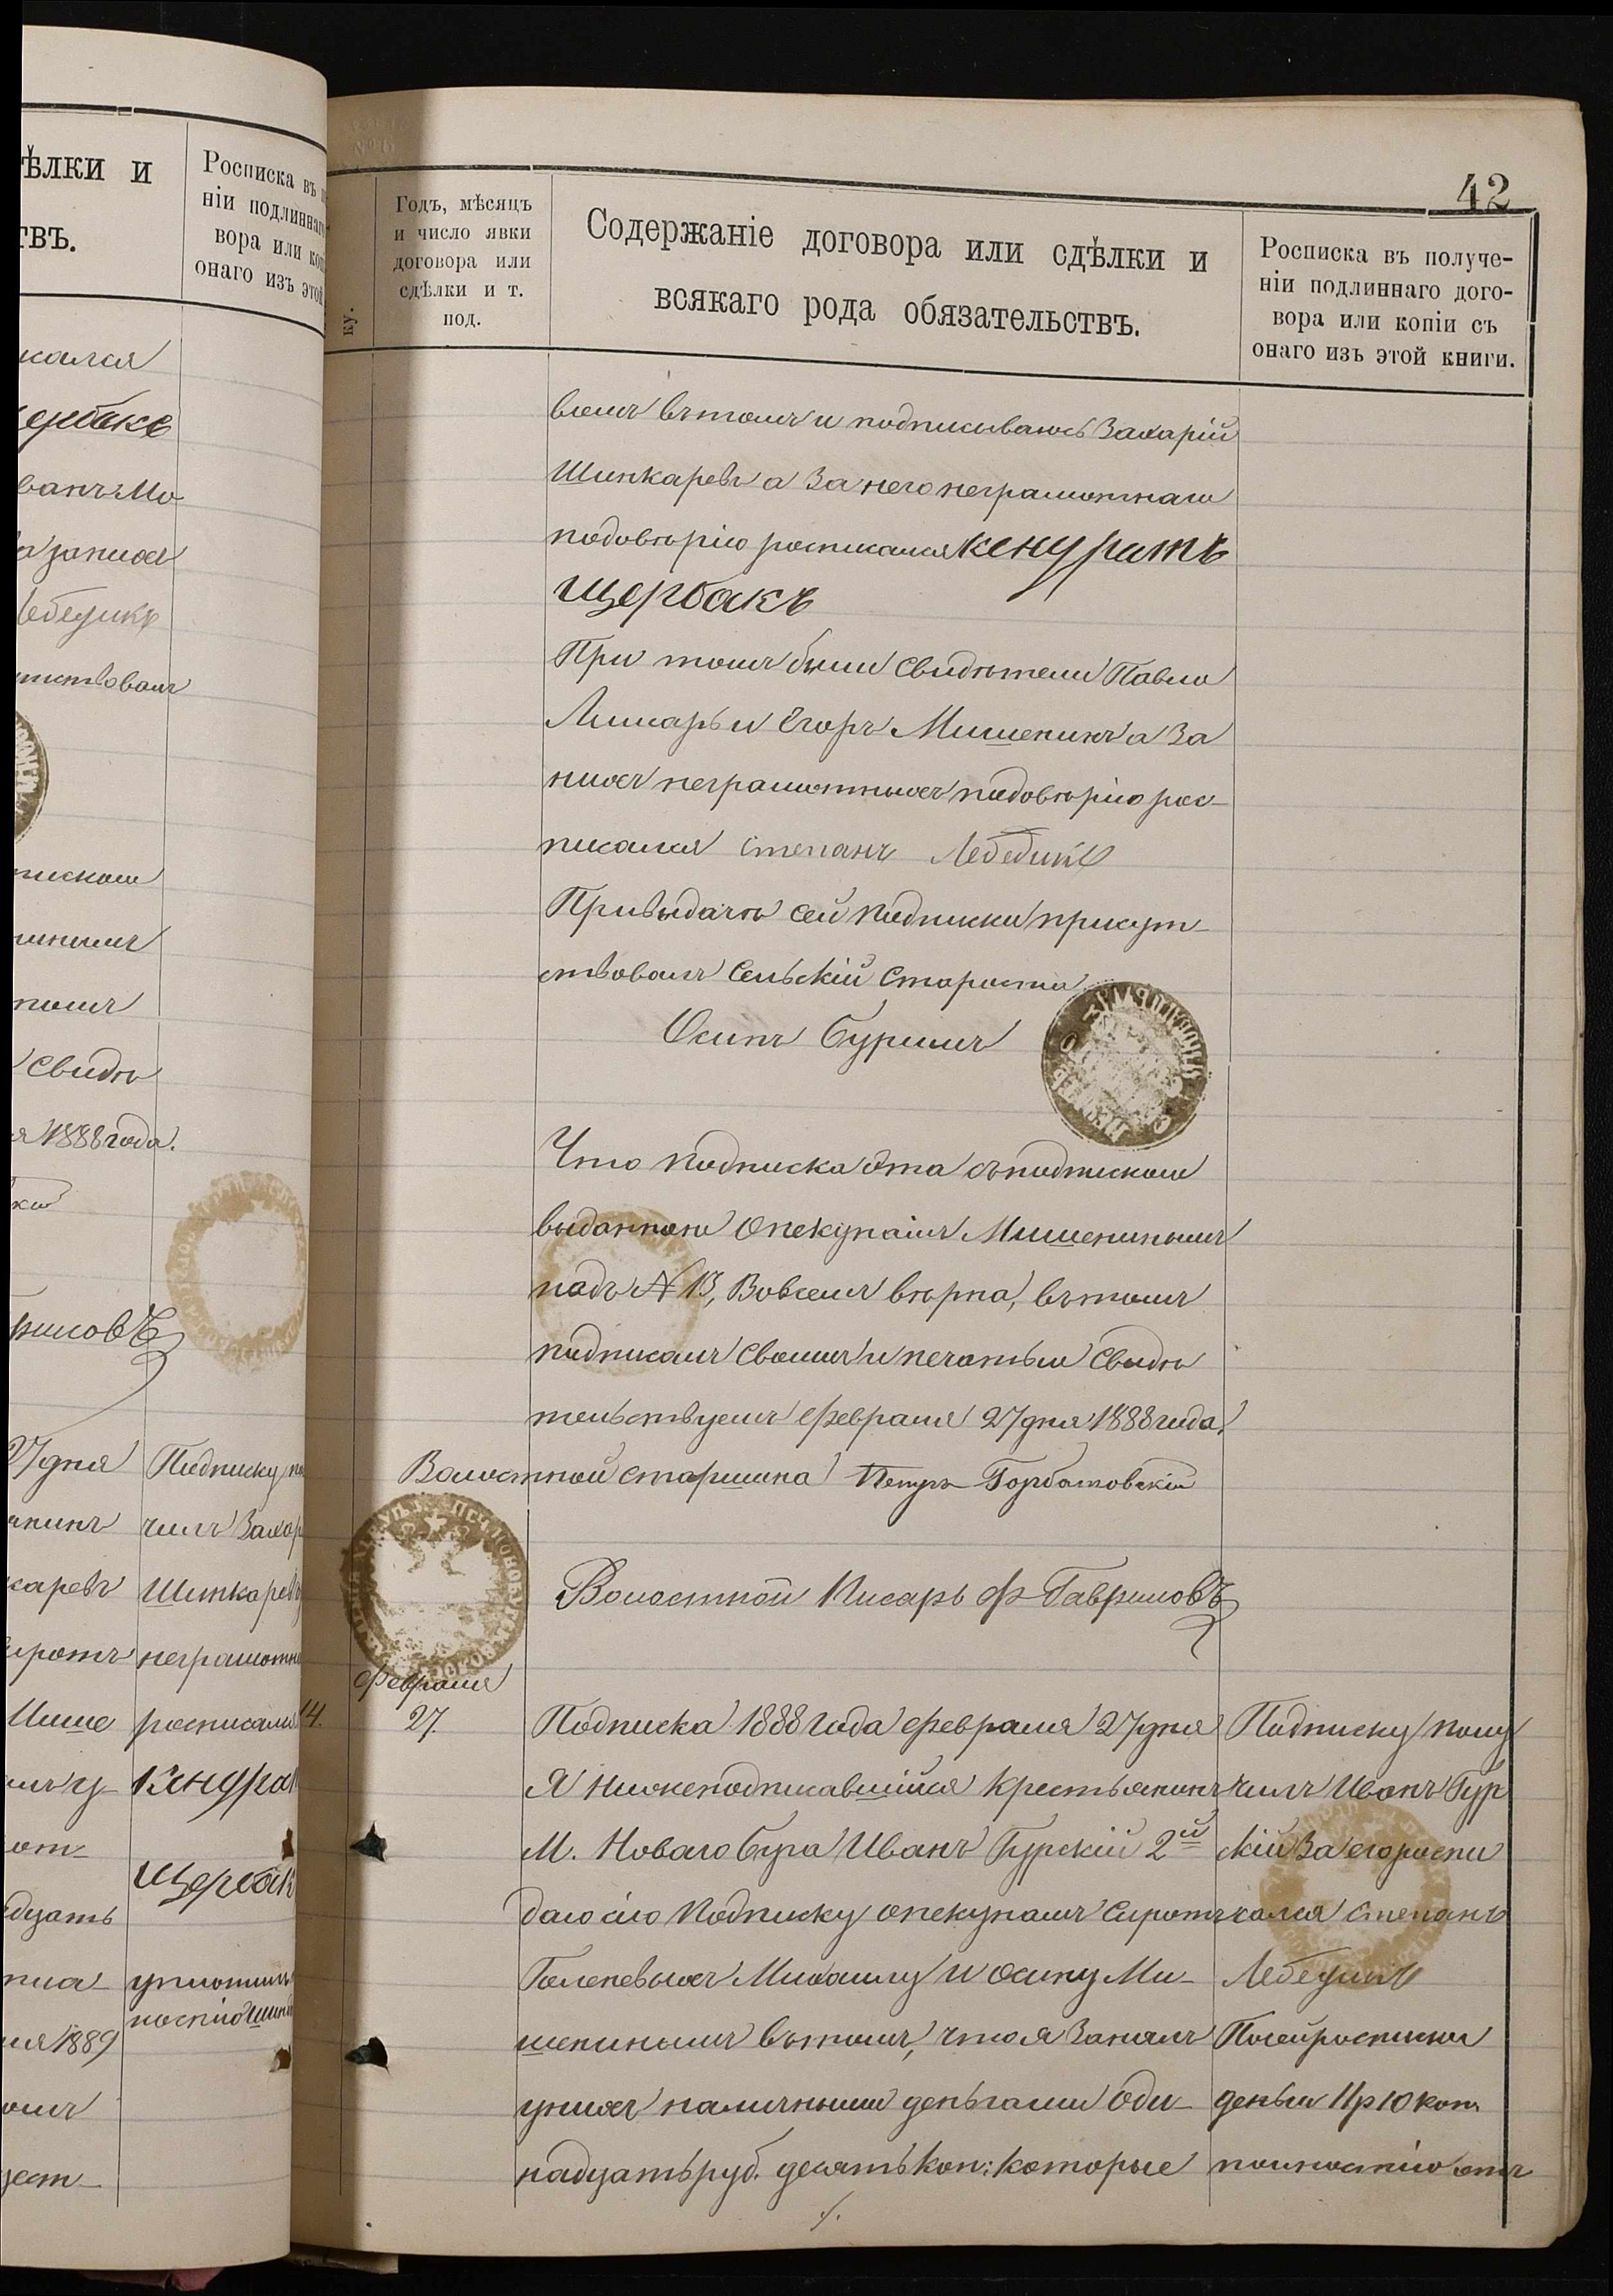 ѣлки и
твъ.
Росписка въ
ніи подлиннаг
вора или коп
онаго изъ этой
кался
ербакъ
ванъ Мо
а записа
Лебедикъ
тствовалъ
пискою
полъ
свидѣ
я 1888 года.
риловъ
27 дня
анинъ
каревъ
сиротъ
Мише
от-
дцать
ля 1889
Подписку по
чилъ Захар
Шинкаревъ
неграмотны
росписался
Кендрат
Щербак
уплотил
ностію
42
Годъ, мѣсяцъ
и число явки
договора или
сдѣлки и т.
под.
ку.
Содержаніе договора или сдѣлки и
всякаго рода обязательствъ.
Росписка въ получе-
ніи подлиннаго дого-
вора или копіи съ
онаго изъ этой книги.
вомъ вътомъ и подписываюсь Захарій
Шинкаревъ а за него неграмотнаго
подовѣрію росписался кендратъ
щербакъ
При томъ были свидѣтели Павло
Лимарь и Егоръ Мишенинъ а за
нихъ неграмотныхъ подовѣрію рос-
писался степанъ Лебедикъ
Привыдачѣ сей подписки присут-
ствовалъ Сельскій Староста
Осипъ Бурлимъ
Что подписка эта съподпискою
выданною Опекунамъ Мишенинымъ
подъ № 13, Вовсемъ вѣрна, вътомъ
подписомъ своимъ и печатью свидѣ
тельствуемъ февраля 27 дня 1888 года
Волостной старшина Петръ Горбатовскій
Волостной Писарь Ф Гавриловъ
февраля
14.
27.
Подписка 1888 года февраля 27 дня
Я нижеподписавшійся крестьянинъ
М. Новаго Буга Иванъ Гурскій 2й
даю сію подписку опекунамъ сиротъ
Голеневыхъ Михаилу и осипу Ми-
шенинымъ вътомъ, что я занялъ
унихъ наличными деньгами оди-
надцать руб. десять коп: которые
Подписку полу
чилъ Иванъ Гур
скій За егороспи
сался степанъ
Лебедикъ
Посейроспискѣ
деньги 11 р 10 коп.
полностію отъ
/.